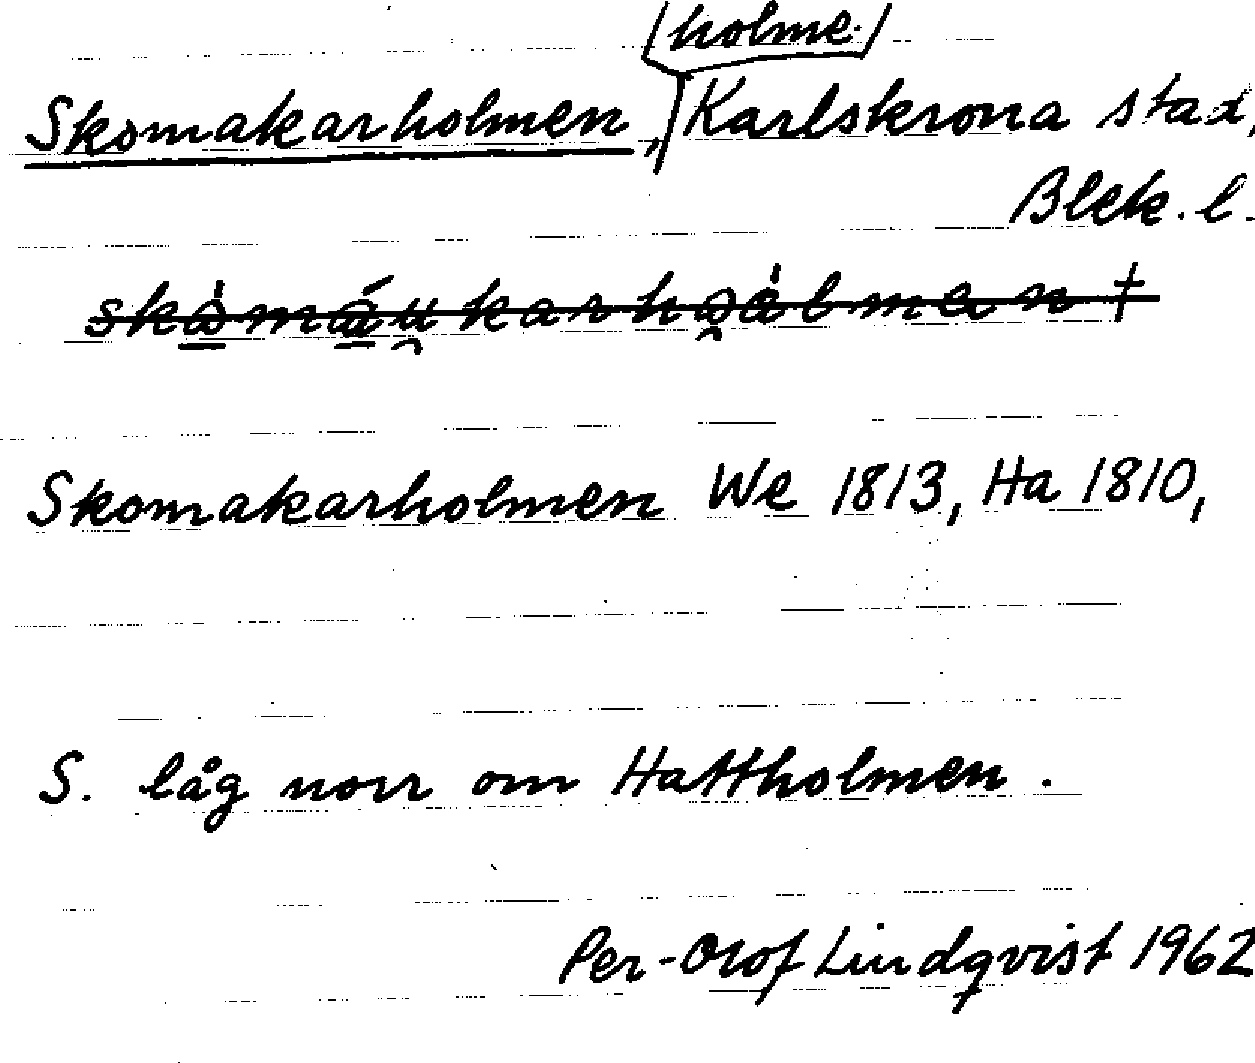 holme.
Skomakarholmen, Karlskrona stad,
Blek. l.
Skomakarholmen We 1813, Ha 1810,
S. låg norr om Hattholmen.
Per-Olof Lindqvist 1962